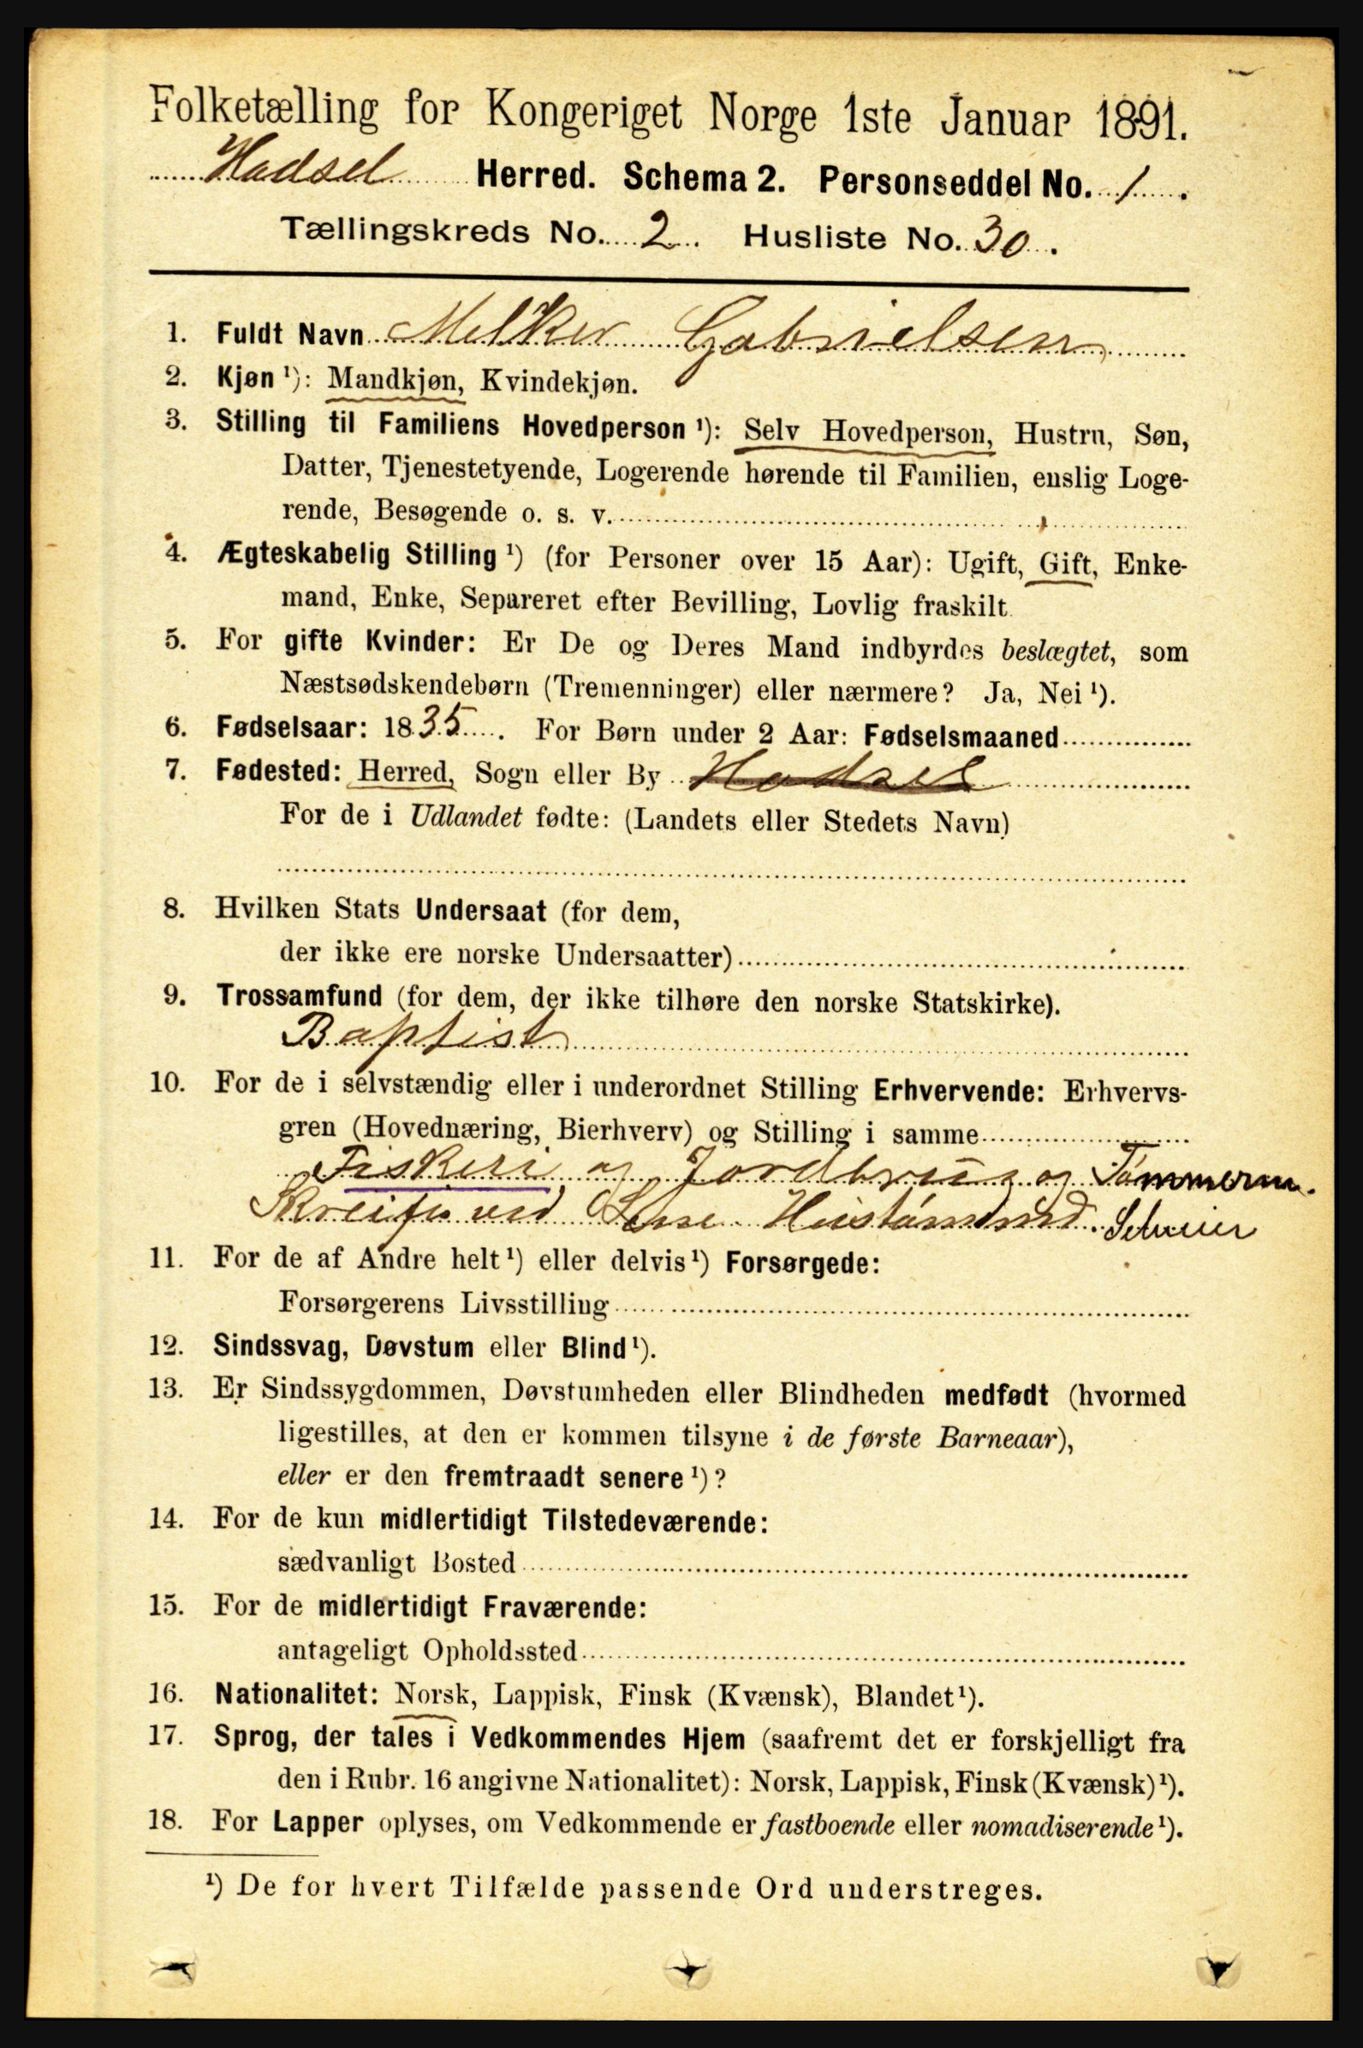 Folketælling for Kongeriget Norge 1ste Januar 1891.
Hadsel Herred. Schema 2. Personseddel No. 1.
Tællingskreds No. 2. Husliste No. 30.
1. Fuldt Navn Melker Gabrielsen
2. Kjøn ¹): Mandkjøn, Kvindekjøn.
3. Stilling til Familiens Hovedperson ¹): Selv Hovedperson, Hustru, Søn,
Datter, Tjenestetyende, Logerende hørende til Familien, enslig Loge-
rende, Besøgende o. s. v.
4. Ægteskabelig Stilling ¹) (for Personer over 15 Aar): Ugift, Gift, Enke-
mand, Enke, Separeret efter Bevilling, Lovlig fraskilt
5. For gifte Kvinder: Er De og Deres Mand indbyrdes beslægtet, som
Næstsødskendebørn (Tremenninger) eller nærmere? Ja, Nei ¹).
6. Fødselsaar: 1835. For Børn under 2 Aar: Fødselsmaaned
7. Fødested: Herred, Sogn eller By Hadsel
For de i Udlandet fødte: (Landets eller Stedets Navn)
8. Hvilken Stats Undersaat (for dem,
der ikke ere norske Undersaatter)
9. Trossamfund (for dem, der ikke tilhøre den norske Statskirke).
Baptist
10. For de i selvstændig eller i underordnet Stilling Erhvervende: Erhvervs-
gren (Hovednæring, Bierhverv) og Stilling i samme
Fiskeri og Jordbrug og Tømmerm.
ved Selveier
11. For de af Andre helt ¹) eller delvis ¹) Forsørgede:
Forsørgerens Livsstilling
12. Sindssvag, Døvstum eller Blind ¹).
13. Er Sindssygdommen, Døvstumheden eller Blindheden medfødt (hvormed
ligestilles, at den er kommen tilsyne i de første Barneaar),
eller er den fremtraadt senere ¹)?
14. For de kun midlertidigt Tilstedeværende:
sædvanligt Bosted
15. For de midlertidigt Fraværende:
antageligt Opholdssted
16. Nationalitet: Norsk, Lappisk, Finsk (Kvænsk), Blandet ¹).
17. Sprog, der tales i Vedkommendes Hjem (saafremt det er forskjelligt fra
den i Rubr. 16 angivne Nationalitet): Norsk, Lappisk, Finsk (Kvænsk) ¹).
18. For Lapper oplyses, om Vedkommende er fastboende eller nomadiserende ¹).
¹) De for hvert Tilfælde passende Ord understreges.